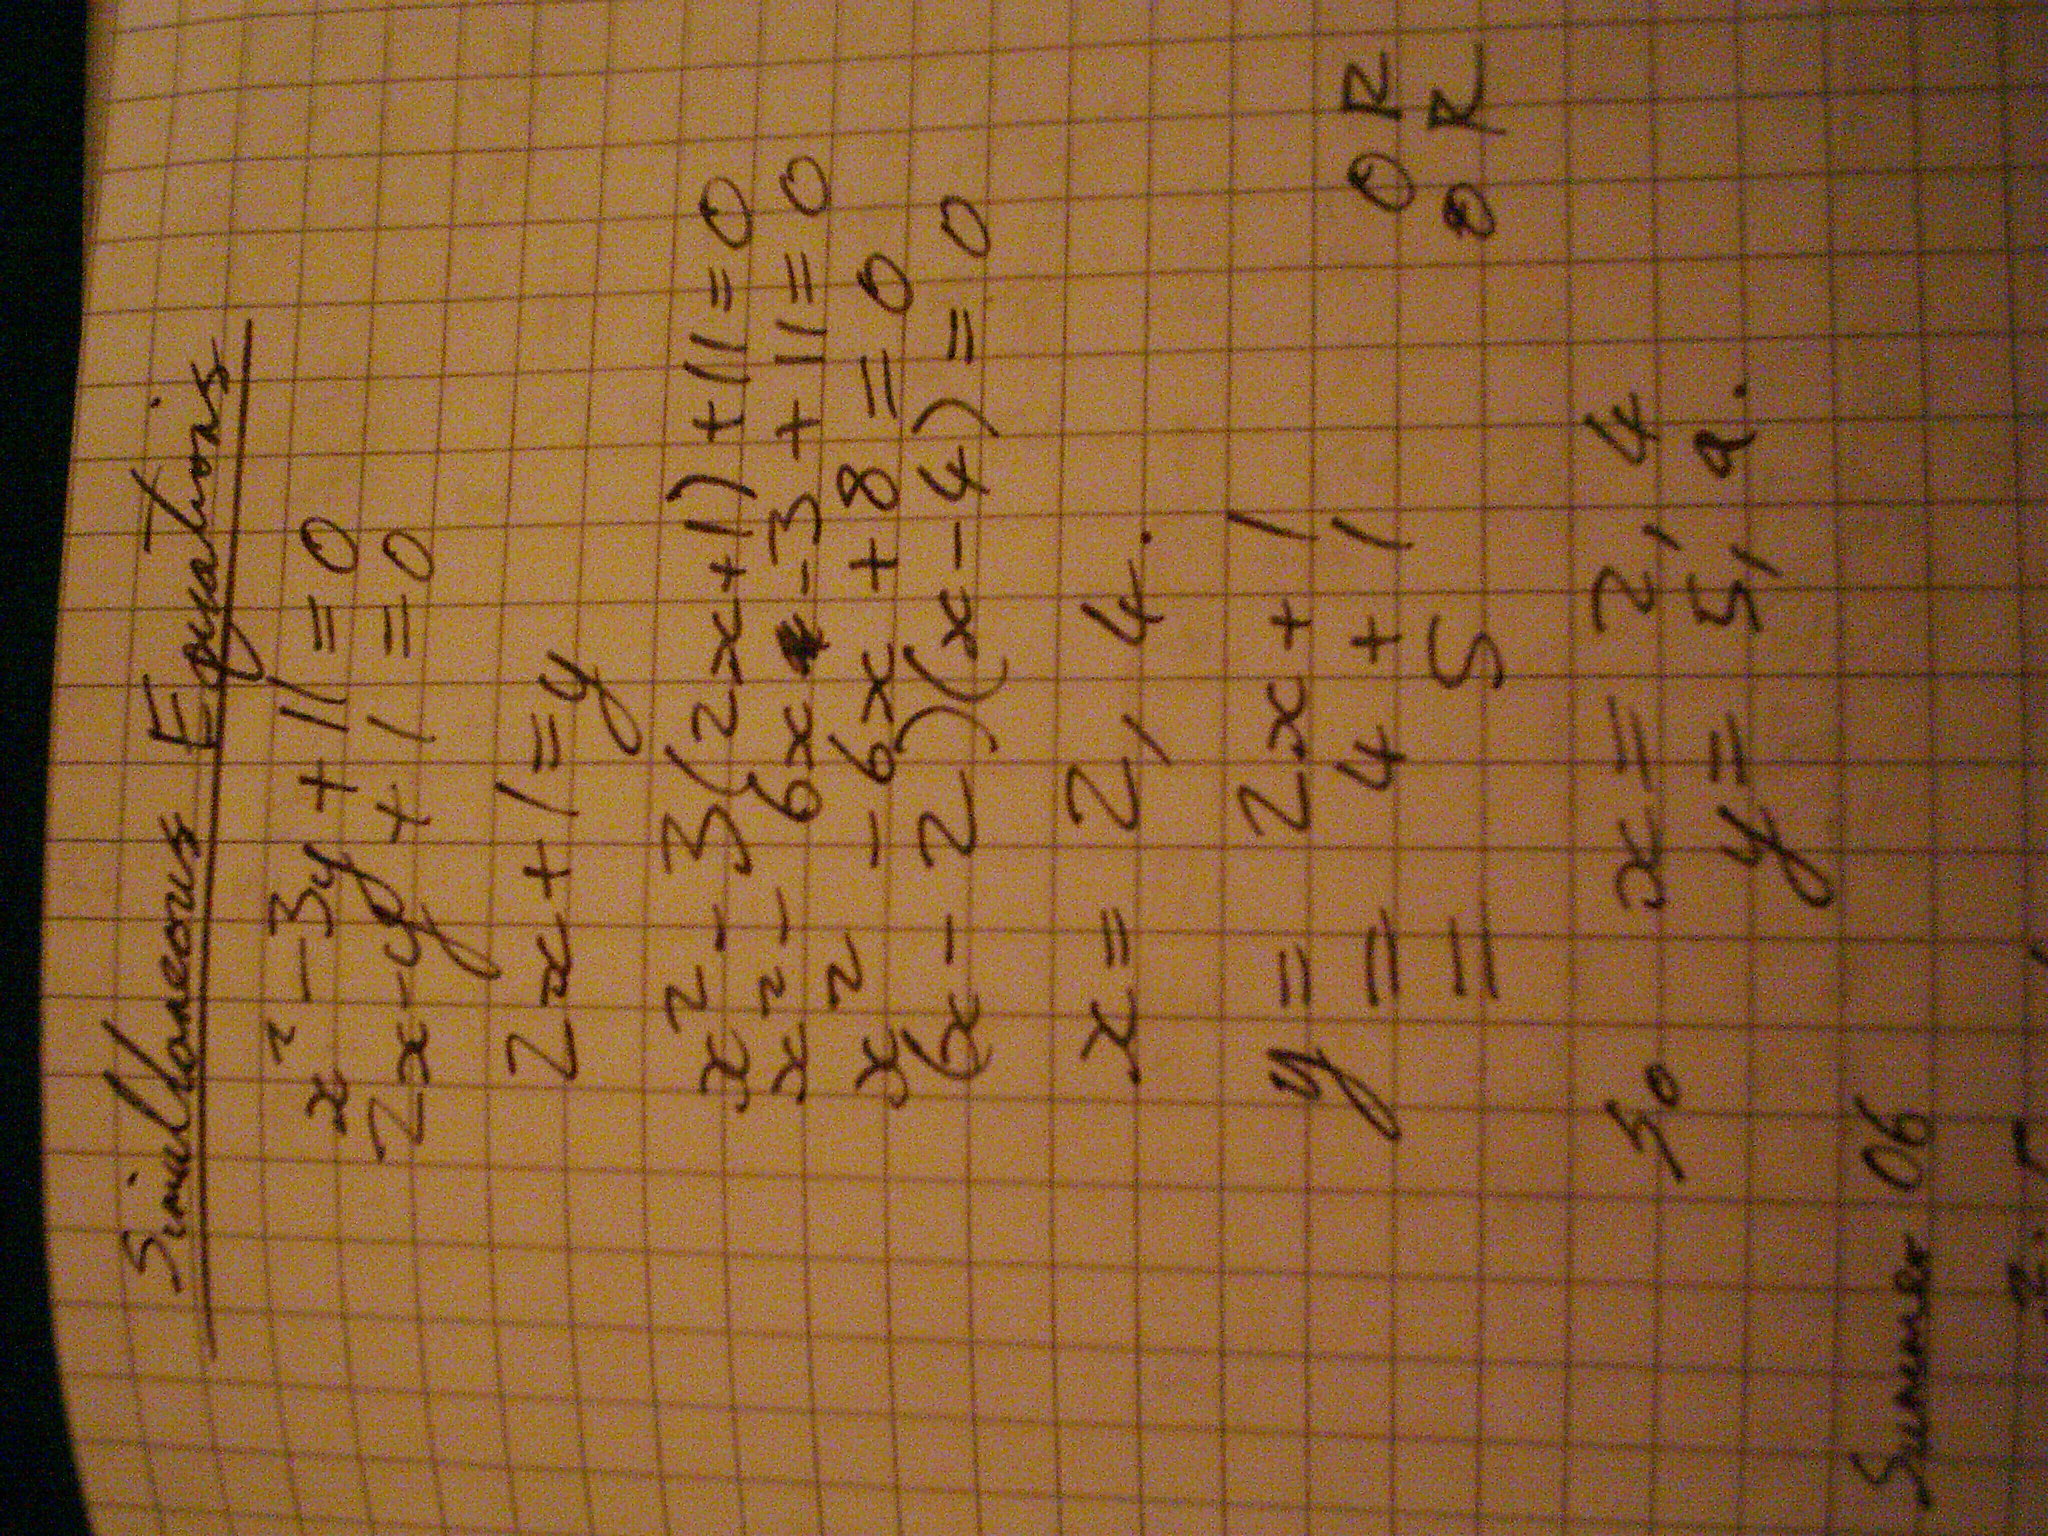 Simultaneous Equations
x² - 3y + 11 = 0
2x - y + 1 = 0
2x + 1 = y
x² - 3(2x+1) + 11 = 0
x² - 6x - 3 + 11 = 0
x² - 6x + 8 = 0
(x - 2)(x - 4) = 0
x = 2, 4.
y = 2x + 1
= 4 + 1 OR
= 5 OR
So x = 2, 4
y = 5, 9.
Summer 06